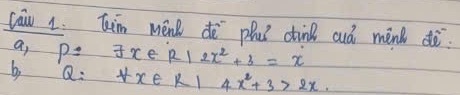 Câu 1: Tìm mệnh đề phủ định cuả mệnh đề:
a, P: ∃x ∈ R | 2x² + 3 = x
b, Q: ∀x ∈ R | 4x² + 3 > 2x.